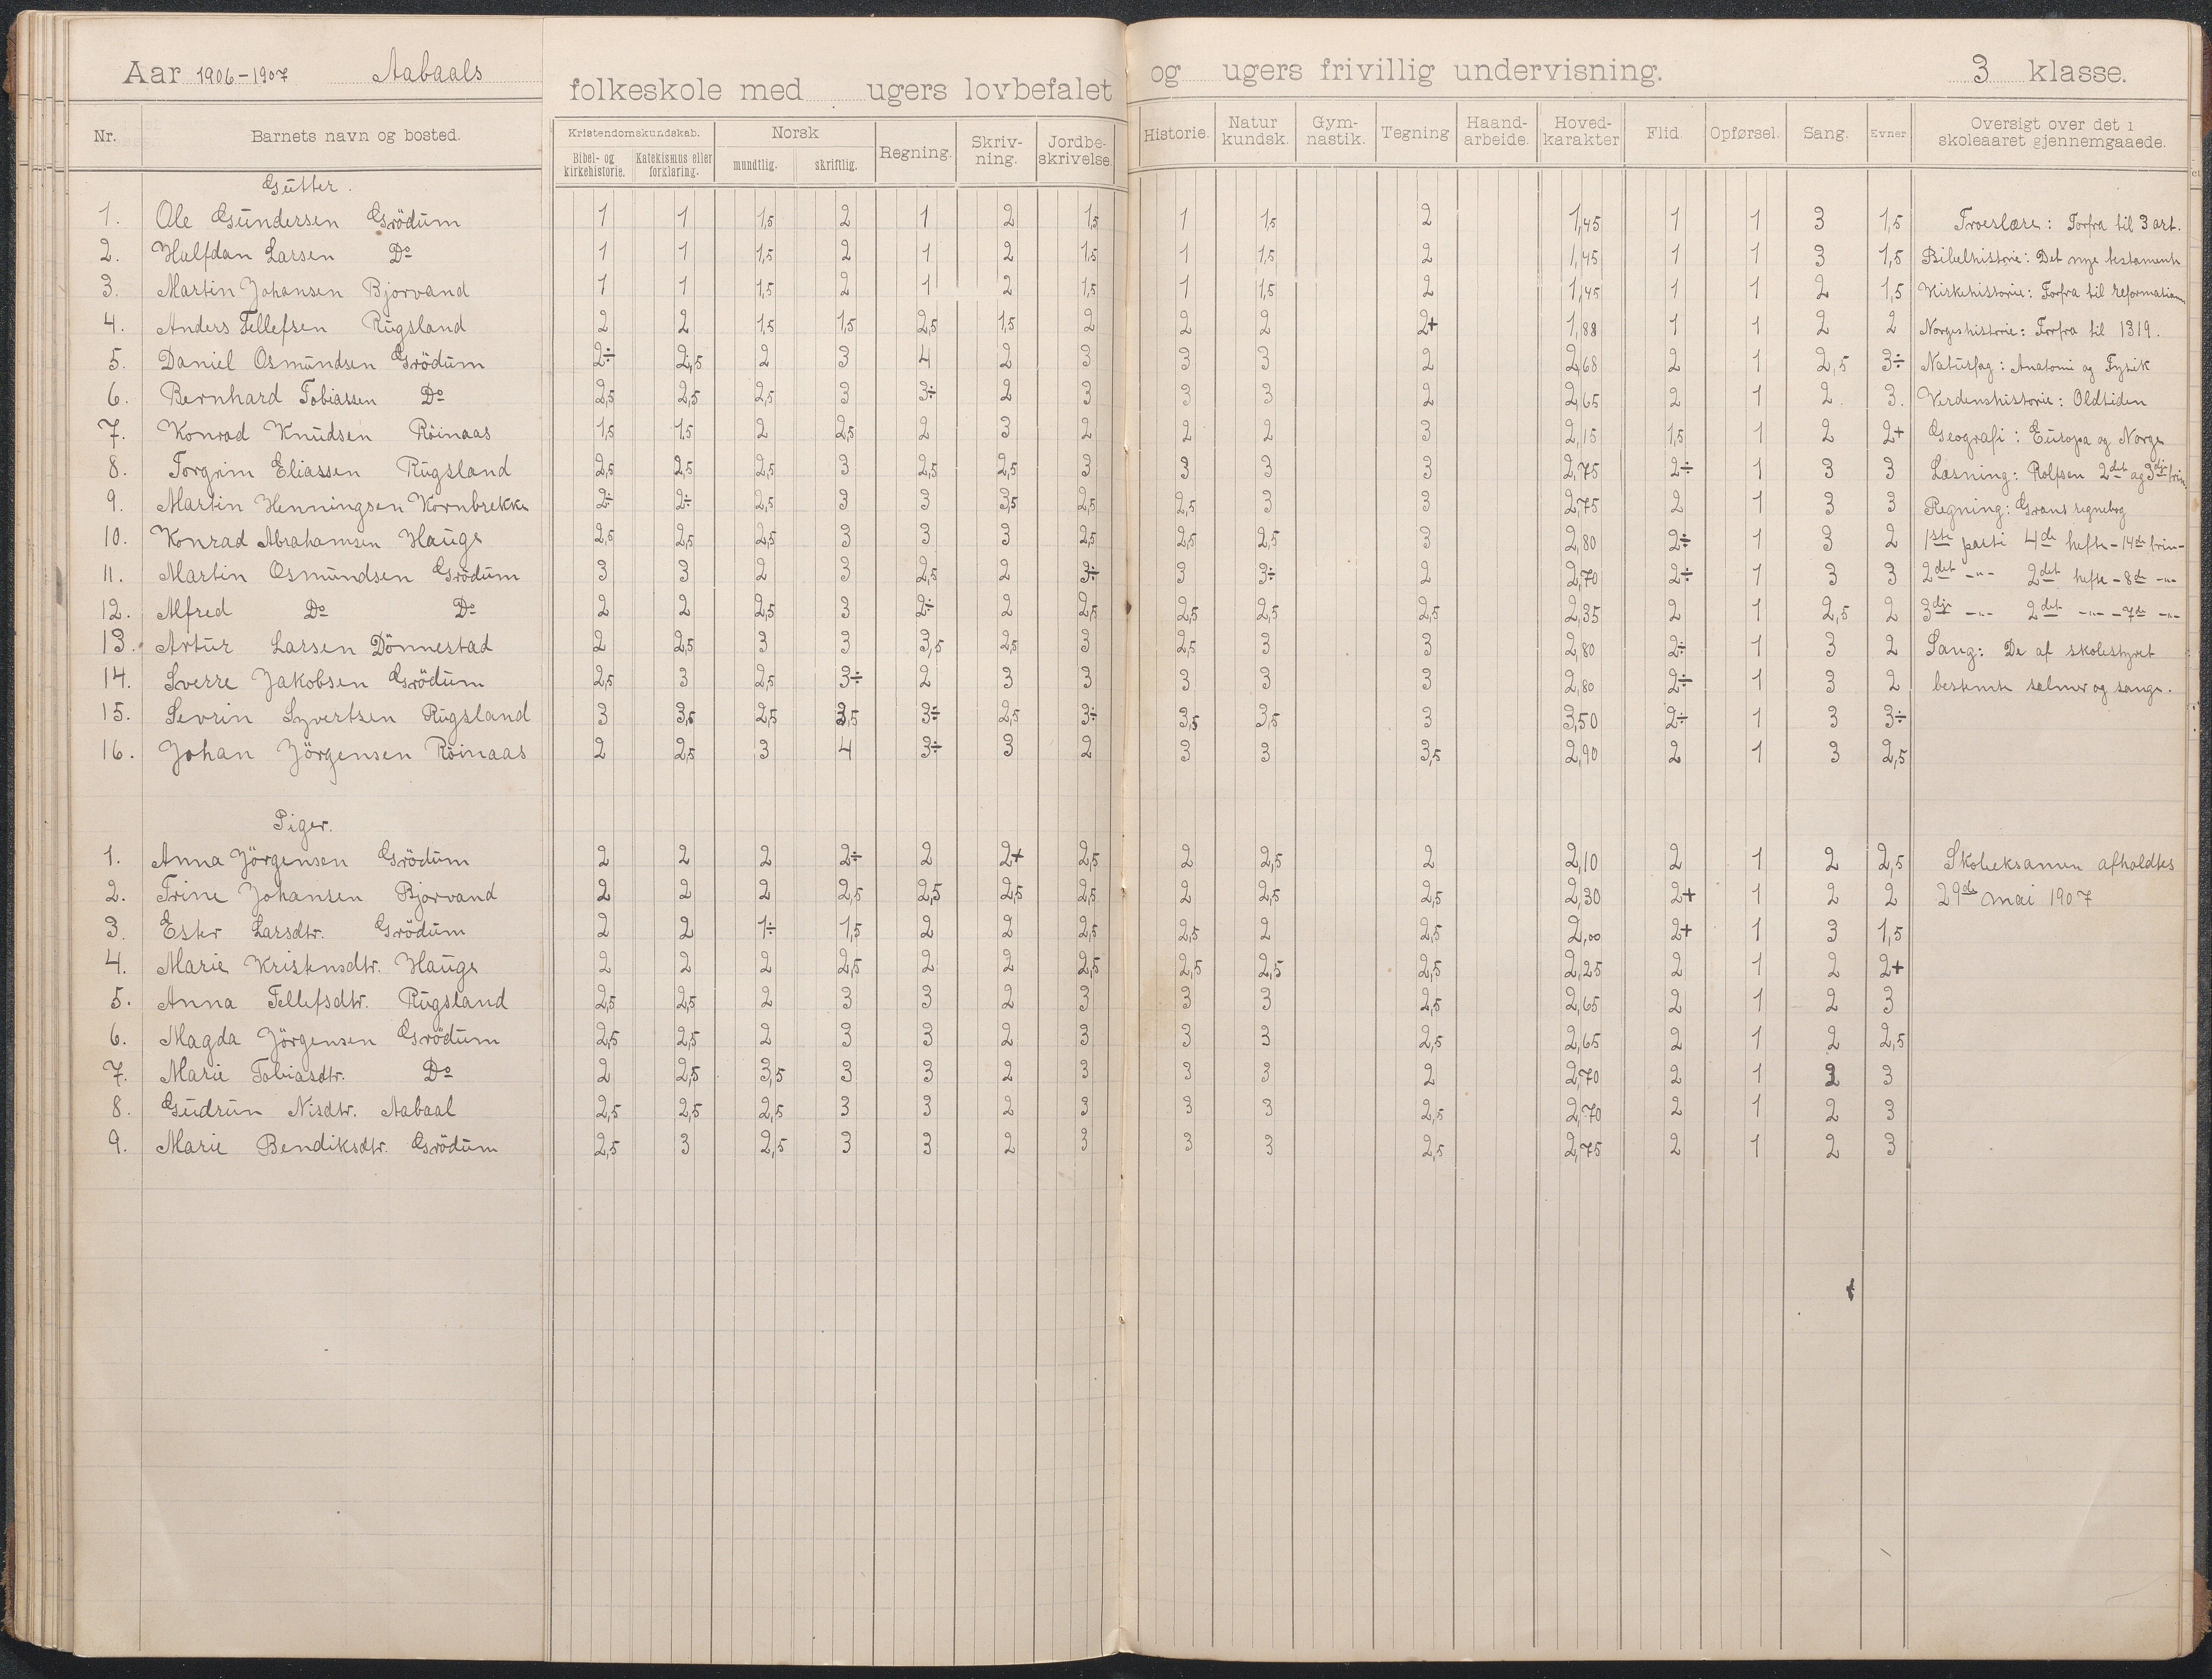 Aar 1906-1907 Aabaals folkeskole med ugers lovbefalet og ugers frivillig undervisning. 3 klasse.
Nr. Barnets navn og bosted. Kristendomskundskab. Bibel- og kirkehistorie. Katekismus eller forklaring. Norsk mundtlig. skriftlig. Regning. Skriv-ning. Jordbe-skrivelse. Historie. Natur kundsk. Gym-nastik. Tegning Haand-arbeide. Hoved-karakter Flid. Opførsel. Sang. Evner Oversigt over det i skoleaaret gjennemgaaede.
Gutter.
1. Ole Gundersen Grödum 1 1 1,5 2 1 2 1,5 1 1,5 2 1,45 1 1 3 1,5 Troeslære: Forfra til 3 art.
2. Halfdan Larsen Do 1 1 1,5 2 1 2 1,5 1 1,5 2 1,45 1 1 3 1,5 Bibelhistorie: Det nye testamente
3. Martin Johansen Bjorvand 1 1 1,5 2 1 2 1,5 1 1,5 2 1,45 1 1 2 1,5 Kirkehistorie: Forfra til reformationen
4. Anders Tellefsen Rugsland 2 2 1,5 1,5 2,5 1,5 2 2 2 2+ 1,88 1 1 2 2 Norgeshistorie: Forfra til 1319.
5. Daniel Osmundsen Grödum 2÷ 2,5 2 3 4 2 3 3 3 2 2,68 2 1 2,5 3÷ Naturfag: Anatomi og Fysik
6. Bernhard Tobiassen Do 2,5 2,5 2,5 3 3÷ 2 3 3 3 2 2,65 2 1 2 3. Verdenshistorie: Oldtiden
7. Konrad Knudsen Röinaas 1,5 1,5 2 2,5 2 3 2 2 2 3 2,15 1,5 1 2 2+ Geografi: Europa og Norge
8. Torgrim Eliassen Rugsland 2,5 2,5 2,5 3 2,5 2,5 3 3 3 3 2,75 2÷ 1 3 3 Læsning: Rolfsen 2det og 3dje trin.
9. Martin Henningsen Kornbrekke 2÷ 2÷ 2,5 3 3 3,5 2,5 2,5 3 3 2,75 2 1 3 3 Regning: Grans regnebog
10. Konrad Abrahamsen Hauge 2,5 2,5 2,5 3 3 3 2,5 2,5 2,5 3 2,80 2÷ 1 3 2 1ste parti 4de hefte - 14de trin-
11. Martin Osmundsen Grödum 3 3 2 3 2,5 2 3÷ 3 3÷ 2 2,70 2÷ 1 3 3 2det -"- 2det hefte - 8de -"-
12. Alfred Do Do 2 2 2,5 3 2÷ 2 2,5 2,5 2,5 2,5 2,35 2 1 2,5 2 3dje -"- 2det -"- - 7de -"-
13. Artur Larsen Dönnestad 2 2,5 3 3 3,5 2,5 3 2,5 3 3 2,80 2÷ 1 3 2 Sang: De af skolestyret
14. Sverre Jakobsen Grödum 2,5 3 2,5 3÷ 2 3 3 3 3 3 2,80 2÷ 1 3 2 bestemte salmer og sange.
15. Sevrin Syvertsen Rugsland 3 3,5 2,5 3,5 3÷ 2,5 3÷ 3,5 3,5 3 3,50 2÷ 1 3 3÷
16. Johan Jörgensen Röinaas 2 2,5 3 4 3÷ 3 2 3 3 3,5 2,90 2 1 3 2,5
Piger.
1. Anna Jörgensen Grödum 2 2 2 2÷ 2 2+ 2,5 2 2,5 2 2,10 2 1 2 2,5 Skoleeksamen afholdtes
2. Trine Johansen Bjorvand 2 2 2 2,5 2,5 2,5 2,5 2 2,5 2,5 2,30 2+ 1 2 2 29de mai 1907
3. Ester Larsdtr. Grödum 2 2 1÷ 1,5 2 2 2,5 2,5 2 2,5 2,00 2+ 1 3 1,5
4. Marie Kristensdtr. Hauge 2 2 2 2,5 2 2 2,5 2,5 2,5 2,5 2,25 2 1 2 2+
5. Anna Tellefsdtr. Rugsland 2,5 2,5 2 3 3 2 3 3 3 2,5 2,65 2 1 2 3
6. Magda Jörgensen Grödum 2,5 2,5 2 3 3 2 3 3 3 2,5 2,65 2 1 2 2,5
7. Marie Tobiasdtr. Do 2 2,5 3,5 3 3 2 3 3 3 2 2,70 2 1 2 3
8. Gudrun Nisdtr. Aabaal 2,5 2,5 2,5 3 3 2 3 3 3 2,5 2,70 2 1 2 3
9. Marie Bendiksdtr. Grödum 2,5 3 2,5 3 3 2 3 3 3 2,5 2,75 2 1 2 3